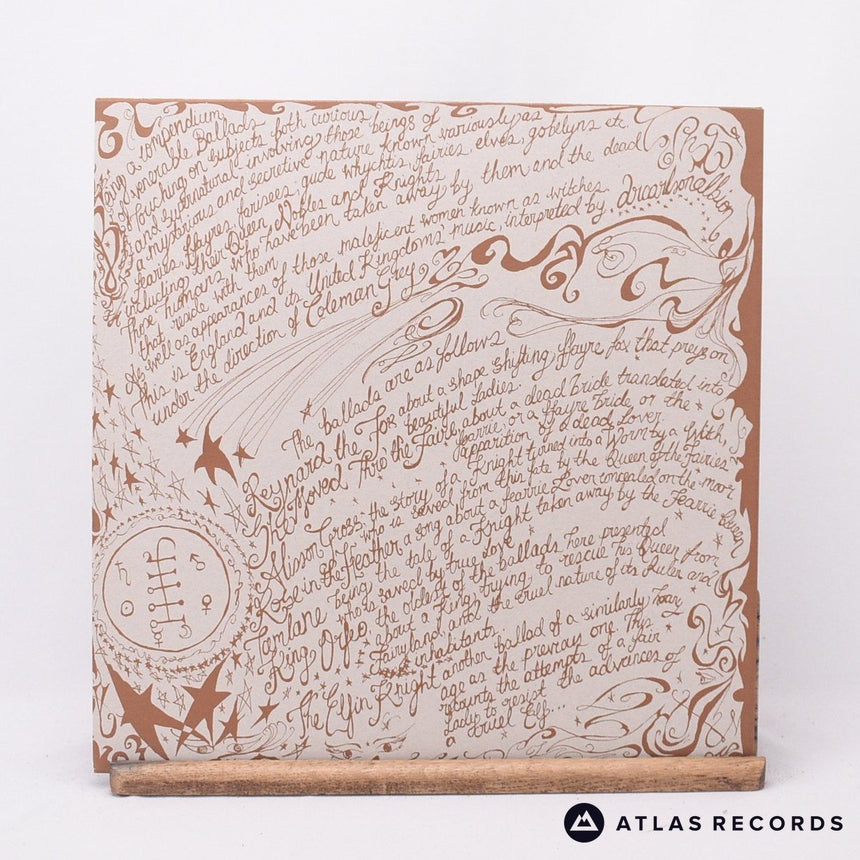 Being a compendium
of venerable Ballads
touching on subjects both curious
and supernatural involving those beings of
a mysterious and secretive nature known variously as
fearies, ffayres, farisees, gude whychtis, fairies, elves, gobelyns etc.
including their Queen, Nobles and Knights
Those humans who have been taken away by them and the dead
that reside with them
As well as appearances of those maleficent women known as witches.
This is England and its United Kingdoms' music, interpreted by,
under the direction of Coleman Grey
The ballads are as follows
Reynard the Fox about a shape shifting ffayre fox that preys on
beautiful ladies.
She Moved Thro' the Faire, about a dead bride translated into
fearrie, or a ffayre bride or the
apparition of a dead Lover.
Alison Cross, the story of a Knight turned into a Worm by a Witch,
who is saved from this fate by the Queen of the Fairies
Rose in the Heather a song about a fearrie Lover concealed on the moor
Tamlane being the tale of a Knight taken away by the Fearrie Queen
who is saved by true love
King Orfeo the oldest of the ballads here presented
about a King trying to rescue his Queen from
Fairyland, and the cruel nature of its Ruler and
inhabitants.
The Elfin Knight another ballad of a similarly hoary
age as the previous one. This
recounts the attempts of a fair
Lady to resist the advances of
a cruel Elf...
ATLAS RECORDS